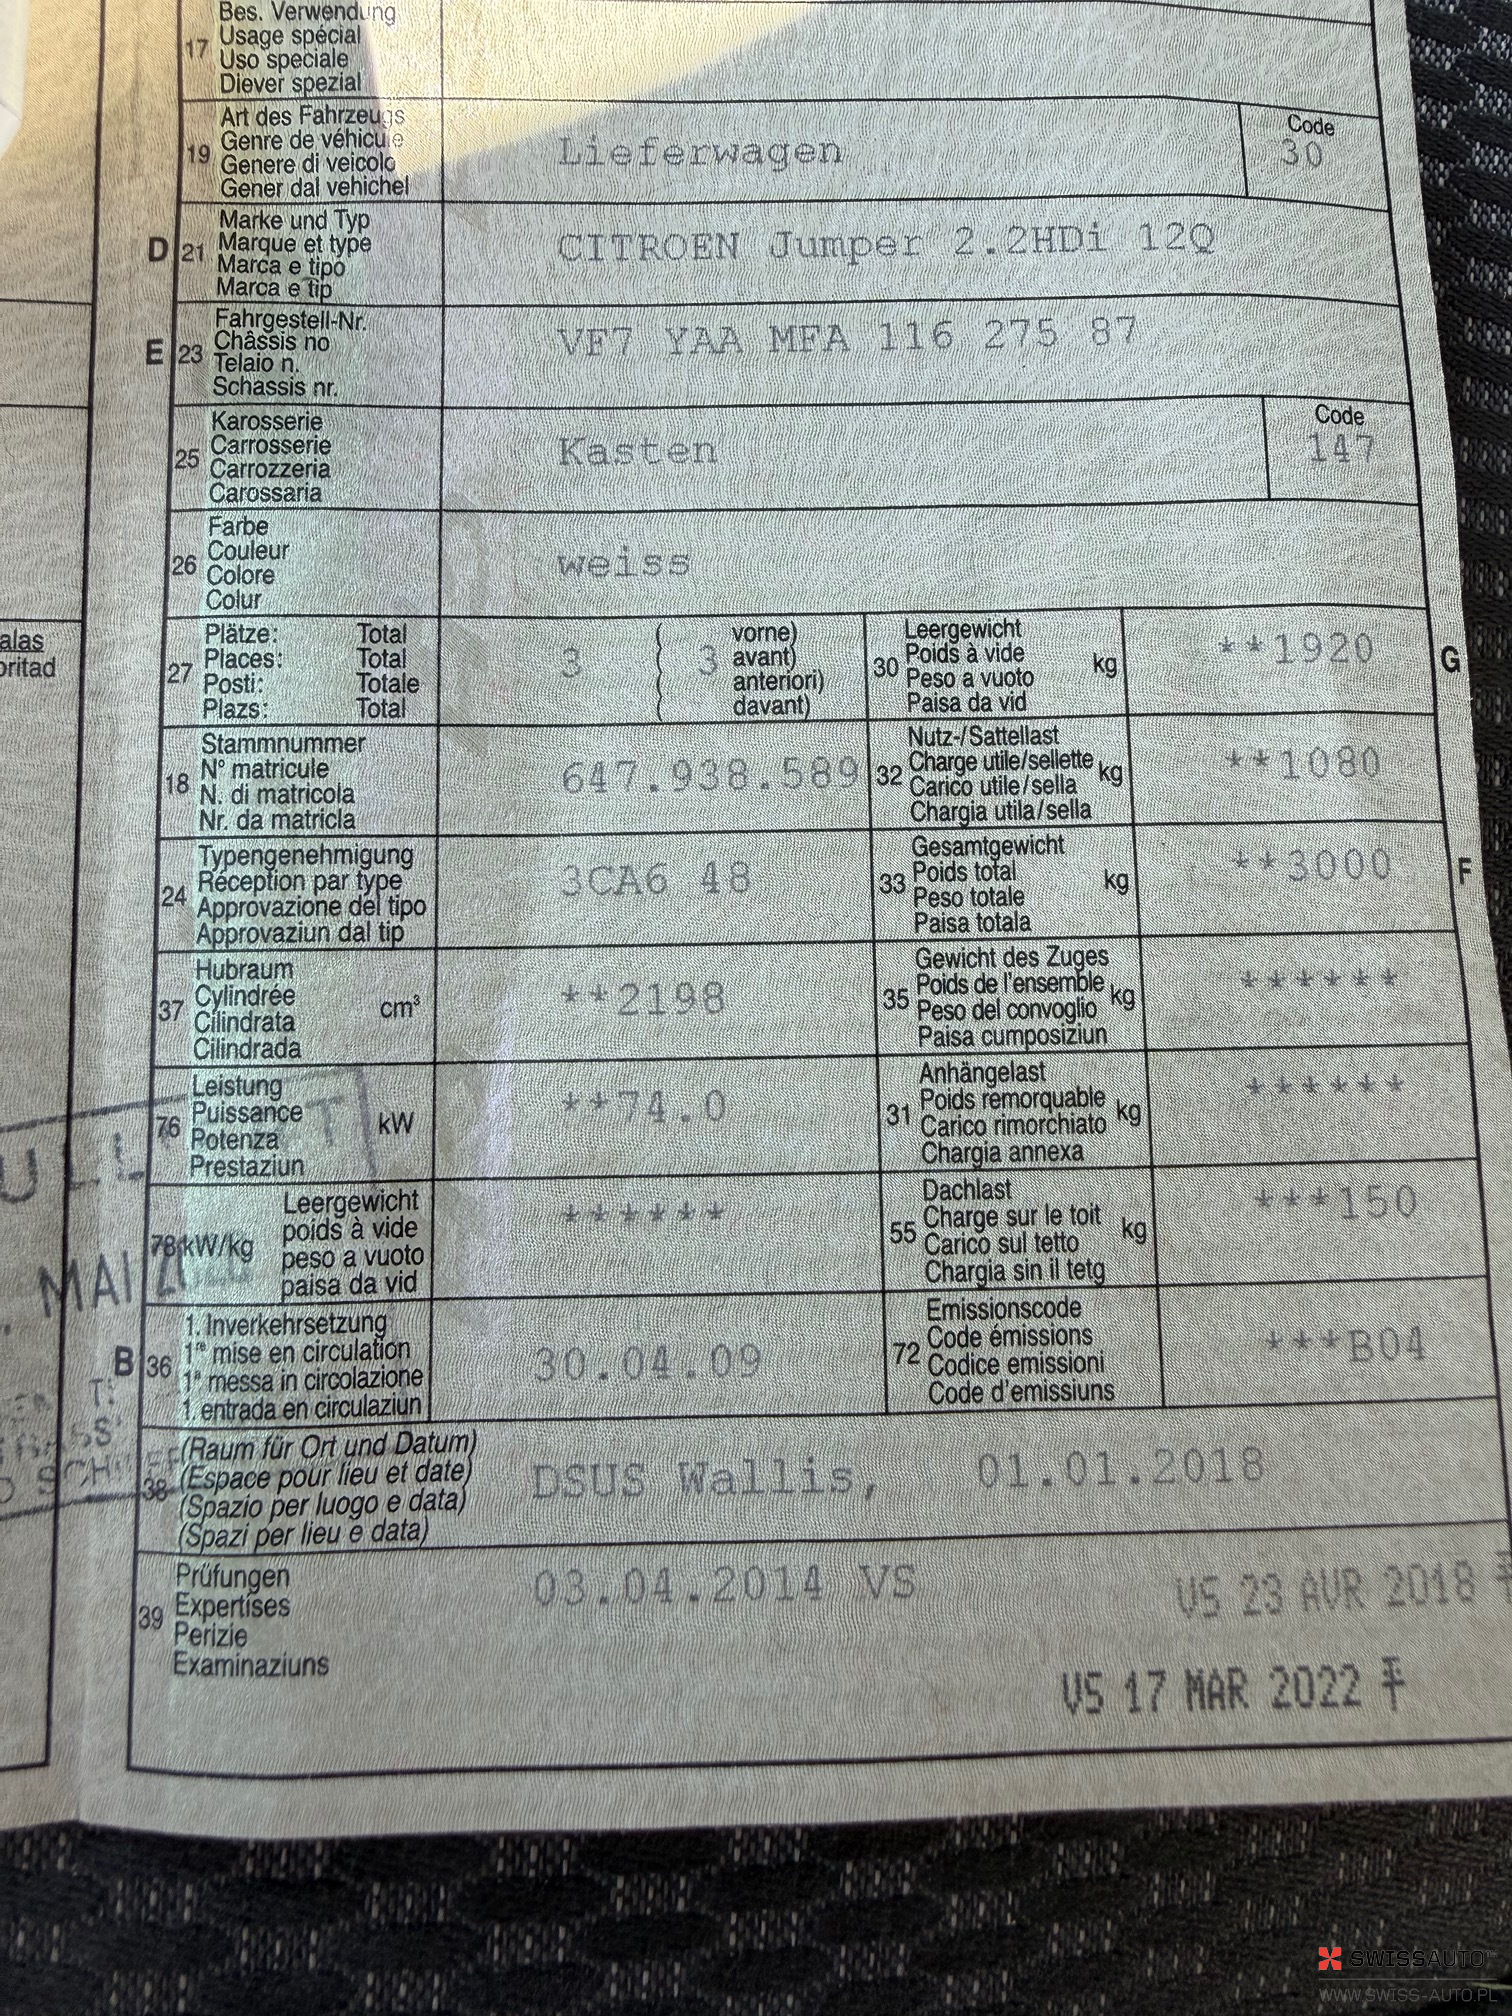 Bes. Verwendung
17 Usage spécial
Uso speciale
Diever spezial
Art des Fahrzeugs
19 Genre de véhicule
Genere di veicolo
Gener dal vehichel
Lieferwagen
Code
30
D 21 Marke und Typ
Marque et type
Marca e tipo
Marca e tip
CITROEN Jumper 2.2HDi 12Q
E 23 Fahrgestell-Nr.
Châssis no
Telaio n.
Schassis nr.
VF7 YAA MFA 116 275 87
25 Karosserie
Carrosserie
Carrozzeria
Carossaria
Kasten
Code
147
26 Farbe
Couleur
Colore
Colur
weiss
alas
oritad
27 Plätze: Total
Places: Total
Posti: Totale
Plazs: Total
3 ( 3 vorne)
( avant)
( anteriori)
( davant)
30 Leergewicht
Poids à vide kg
Peso a vuoto
Paisa da vid
**1920
G
18 Stammnummer
N° matricule
N. di matricola
Nr. da matricla
647.938.589
32 Nutz-/Sattellast
Charge utile/sellette kg
Carico utile/sella
Chargia utila/sella
**1080
24 Typengenehmigung
Réception par type
Approvazione del tipo
Approvaziun dal tip
3CA6 48
33 Gesamtgewicht
Poids total kg
Peso totale
Paisa totala
**3000
F
37 Hubraum
Cylindrée cm³
Cilindrata
Cilindrada
**2198
35 Gewicht des Zuges
Poids de l'ensemble kg
Peso del convoglio
Paisa cumposiziun
******
76 Leistung
Puissance kW
Potenza
Prestaziun
**74.0
31 Anhängelast
Poids remorquable kg
Carico rimorchiato
Chargia annexa
******
78 kW/kg Leergewicht
poids à vide
peso a vuoto
paisa da vid
******
55 Dachlast
Charge sur le toit kg
Carico sul tetto
Chargia sin il tetg
***150
MAI
B 36 1. Inverkehrsetzung
1re mise en circulation
1a messa in circolazione
1. entrada en circulaziun
30.04.09
72 Emissionscode
Code émissions
Codice emissioni
Code d'emissiuns
***B04
38 (Raum für Ort und Datum)
(Espace pour lieu et date)
(Spazio per luogo e data)
(Spazi per lieu e data)
DSUS Wallis, 01.01.2018
39 Prüfungen
Expertises
Perizie
Examinaziuns
03.04.2014 VS
VS 23 AVR 2018
VS 17 MAR 2022
SWISSAUTO
WWW.SWISS-AUTO.PL